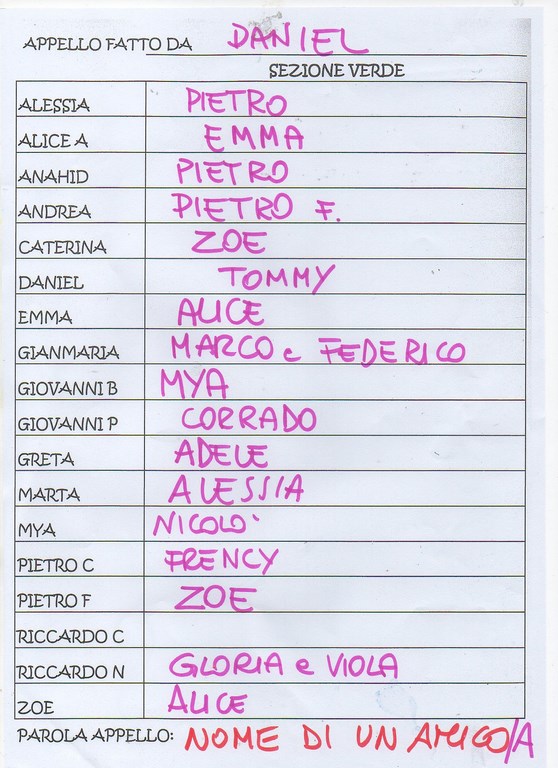 APPELLO FATTO DA DANIEL
SEZIONE VERDE
ALESSIA PIETRO
ALICE A EMMA
ANAHID PIETRO
ANDREA PIETRO F.
CATERINA ZOE
DANIEL TOMMY
EMMA ALICE
GIANMARIA MARCO e FEDERICO
GIOVANNI B MYA
GIOVANNI P CORRADO
GRETA ADELE
MARTA ALESSIA
MYA NICOLO'
PIETRO C FRENCY
PIETRO F ZOE
RICCARDO C
RICCARDO N GLORIA e VIOLA
ZOE ALICE
PAROLA APPELLO: NOME DI UN AMICO/A